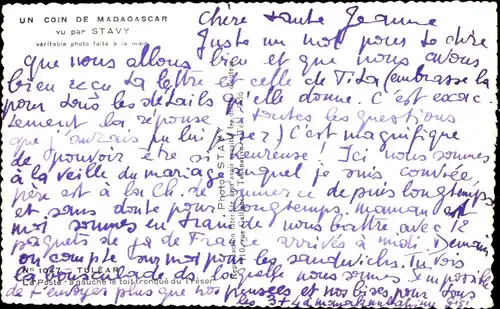 UN COIN DE MADAGASCAR
vu par STAVY
véritable photo faite à la main
Chère tante Jeanne
Juste un mot pour te dire
que nous allons bien et que nous avons
bien reçu ta lettre et celle de Tita (embrasse la
pour tous les détails qu'elle donne. C'est exac
tement la réponse à toutes les questions
que j'aurais pu lui poser) C'est magnifique
de pouvoir être si heureuse! Ici nous sommes
à la veille du mariage auquel je suis conviée
père est à la Ch. de Commerce depuis longtemps
et sans doute pour longtemps, maman et
moi sommes en train de nous battre avec 12
paquets de de France arrivés à midi. Demain
on compte sur moi pour les sandwichs. Tu vois
la bousculade ds laquelle nous sommes. Impossible
de t'envoyer plus que nos pensées et nos bises pour tous
les 3 + 4
Photo STAVY
No 1047 - TULEAR
La Poste - à gauche le toit tronqué du Trésor